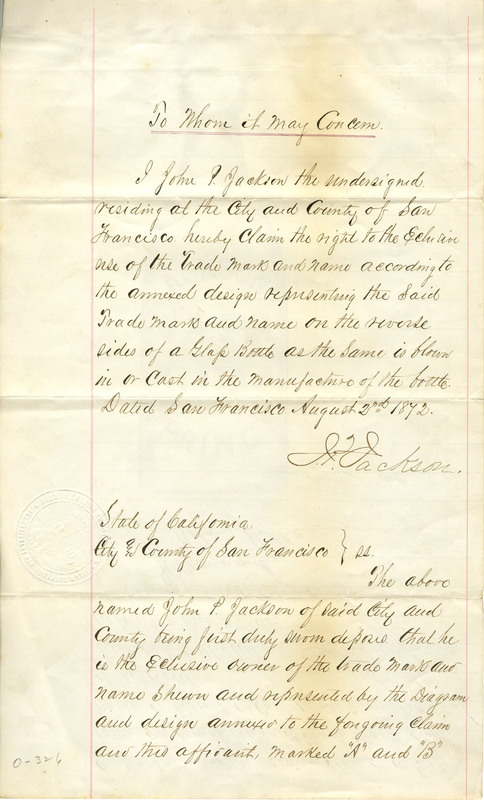 To Whom it May Concern.
I John P. Jackson the undersigned
residing at the City and County of San
Francisco hereby Claim the right to the Eclusive
use of the Trade Mark and name according to
the annexed design representing the Said
Trade Mark and Name on the reverse
sides of a Glass Bottle as the Same is blown
in or Cast in the Manufacture of the bottle.
Dated San Francisco August 2nd 1872.
J. P. Jackson.
State of California
City & County of San Francisco } ss.
The above
named John P. Jackson of said City and
County being first duly sworn deposes that he
is the Eclusive owner of the Trade Mark and
name Shewn and represented by the Diagram
and design annexed to the foregoing Claim
and this affidavit, marked "A" and "B"
0-326